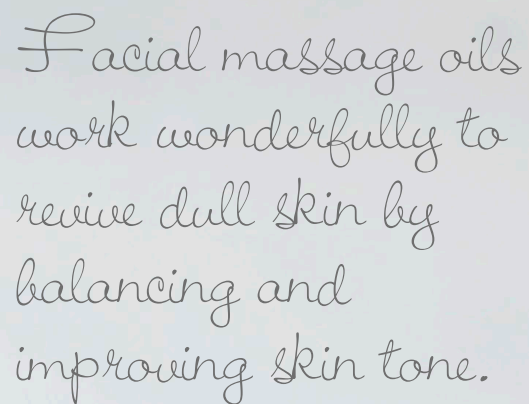 Facial massage oils
work wonderfully to
revive dull skin by
balancing and
improving skin tone.